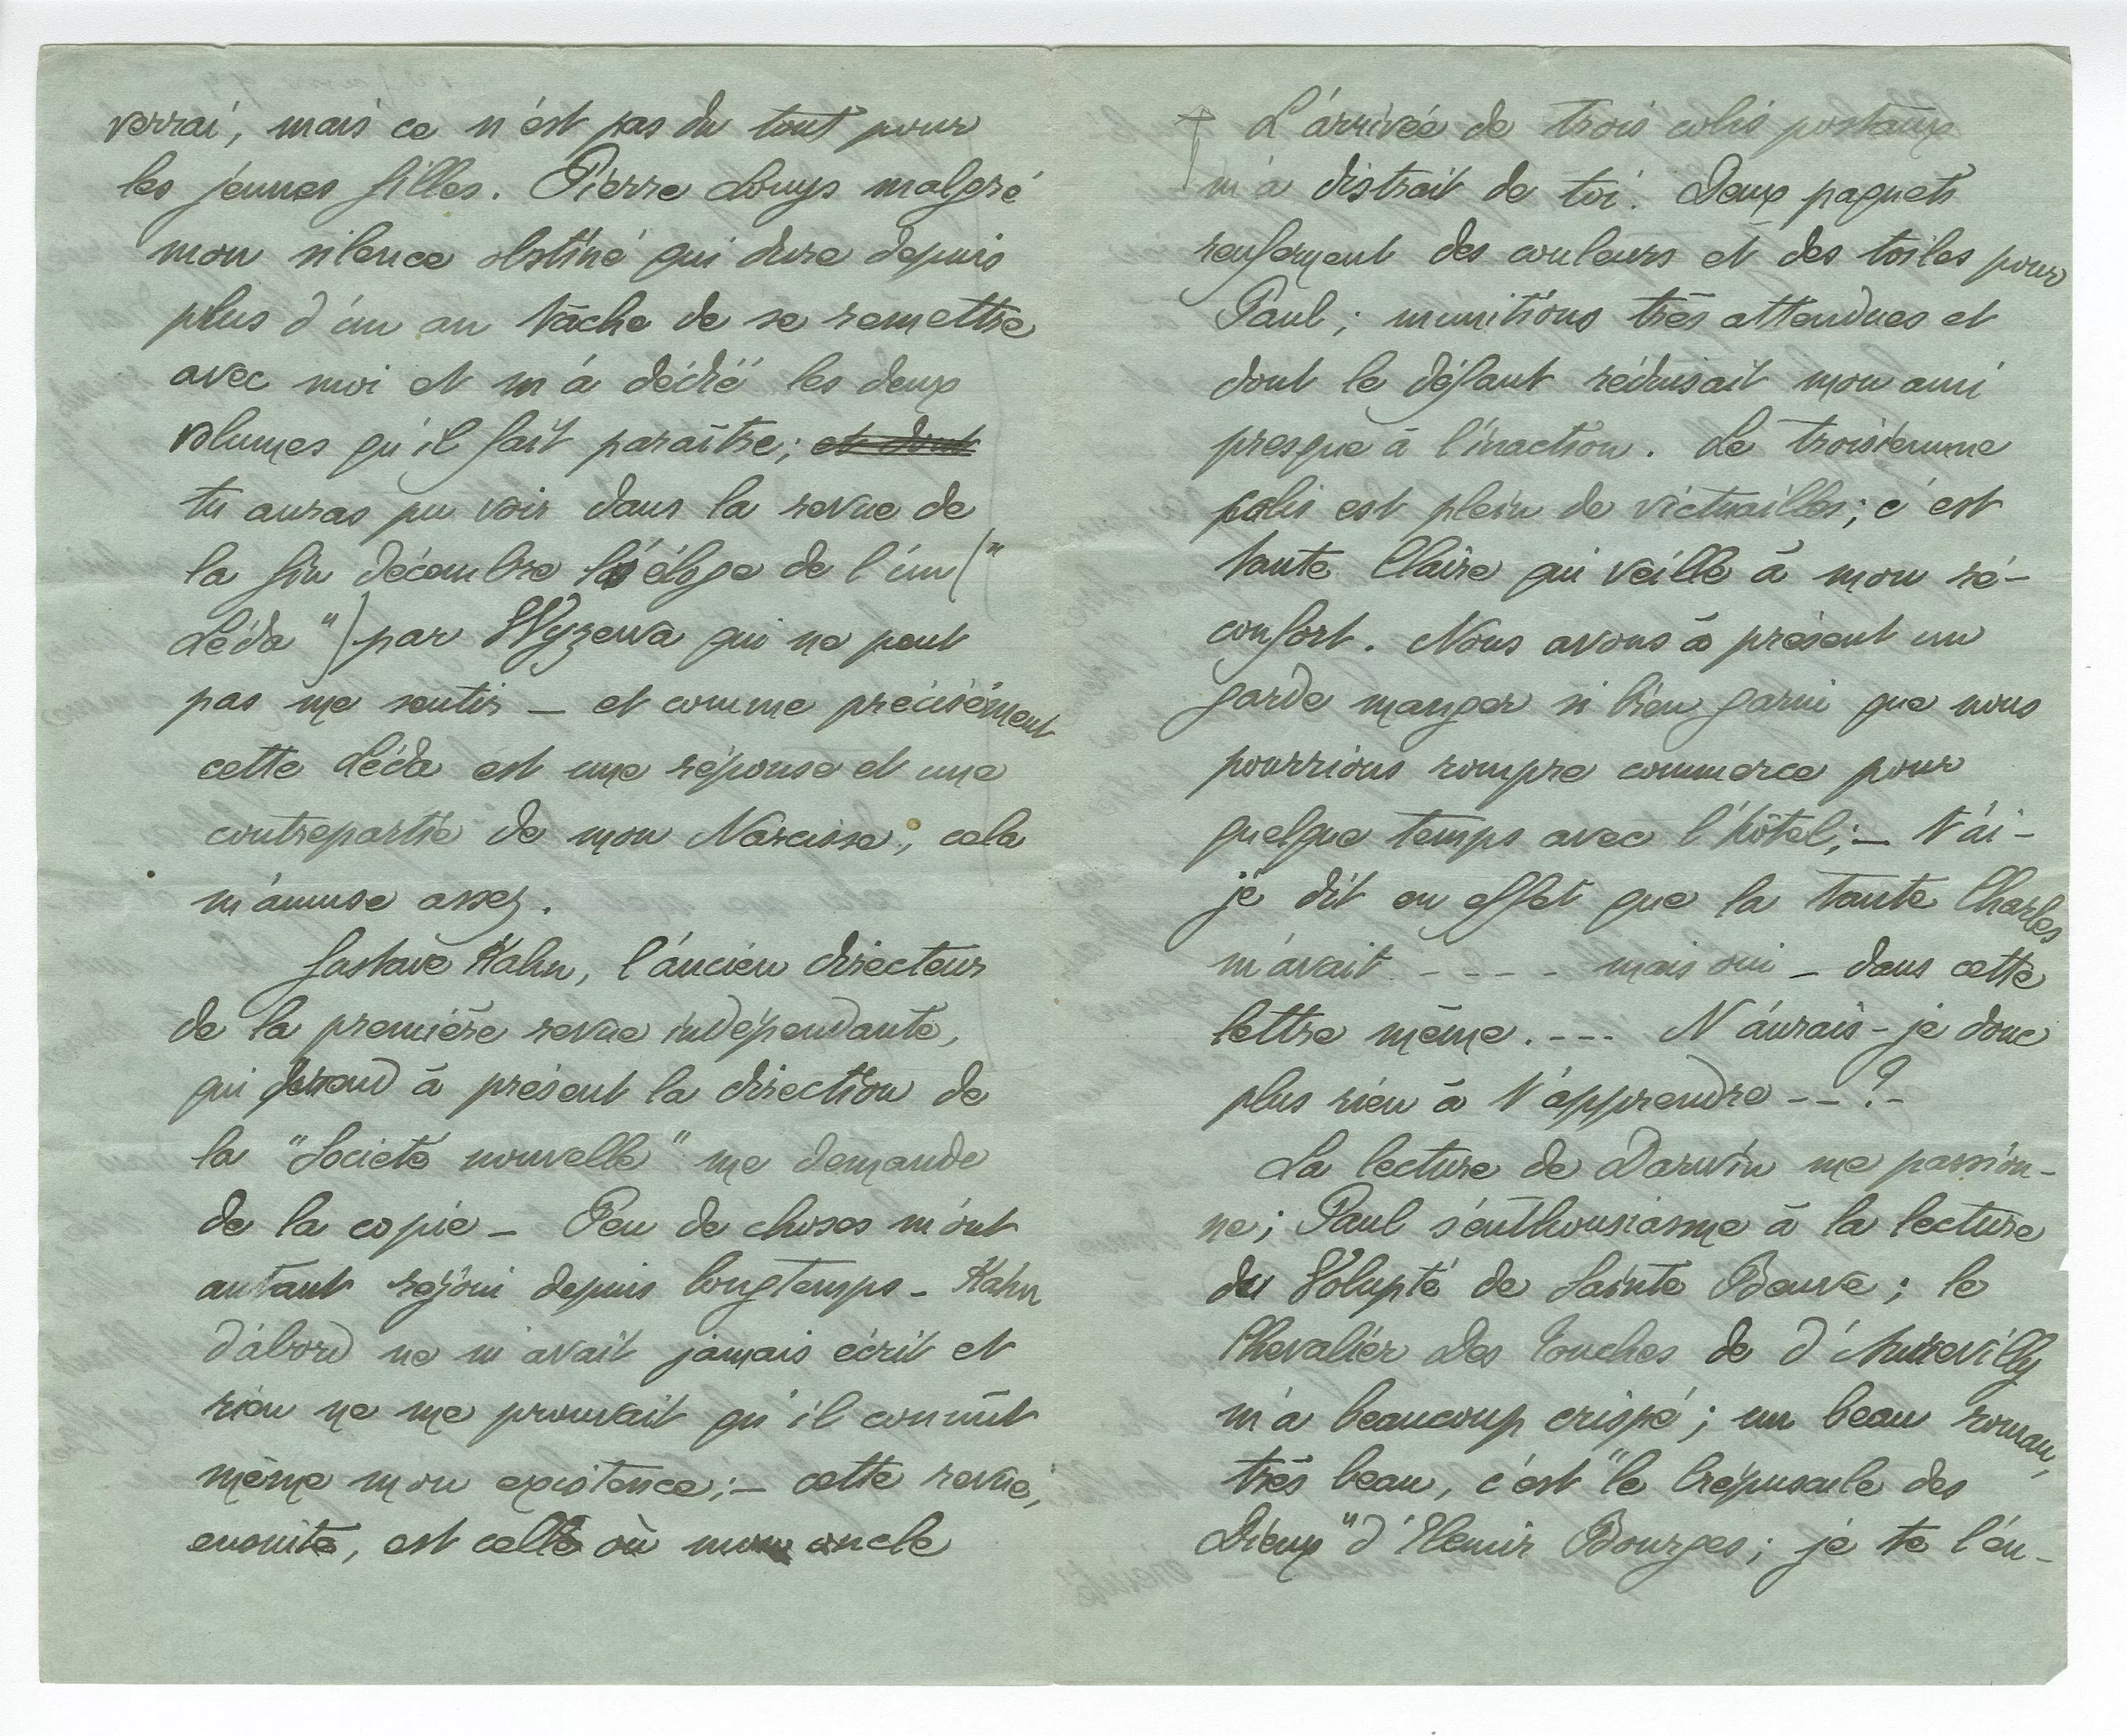 verrai, mais ce n'est pas du tout pour
les jeunes filles. Pierre Louys malgré
mon silence obstiné qui dure depuis
plus d'un an tâche de se remettre
avec moi et m'a dédié les deux
volumes qu'il fait paraître; et dont
tu auras pu voir dans la revue de
la fin décembre l'éloge de l'un ("
Léda") par Wyzewa qui ne peut
pas me sentir – et comme précisément
cette Léda est une réponse et une
contrepartie de mon Narcisse, cela
m'amuse assez.
Gustave Kahn, l'ancien directeur
de la première revue indépendante,
qui prend à présent la direction de
la "Société nouvelle" me demande
de la copie – Peu de choses m'ont
autant réjoui depuis longtemps – Kahn
d'abord ne m'avait jamais écrit et
rien ne me prouvait qu'il connût
même mon existence; – cette revue,
ensuite, est celle où mon oncle
L'arrivée de trois colis postaux
m'a distrait de toi. Deux paquets
renferment des couleurs et des toiles pour
Paul; munitions très attendues et
dont le défaut réduisait mon ami
presque à l'inaction. Le troisième
colis est plein de victuailles; c'est
tante Claire qui veille à mon ré-
confort. Nous avons à présent un
garde manger si bien garni que nous
pourrions rompre commerce pour
quelque temps avec l'hôtel; – t'ai-
je dit en effet que la tante Charles
m'avait - - - - mais oui – dans cette
lettre même. - - - - N'aurais-je donc
plus rien à t'apprendre - - ? -
La lecture de Darwin me passion-
ne; Paul s'enthousiasme à la lecture
de Volupté de Sainte Beuve; le
Chevalier des Touches de d'Aurevilly
m'a beaucoup crispé; un beau roman,
très beau, c'est "le Crépuscule des
Dieux" d'Elemir Bourges; je te l'en-